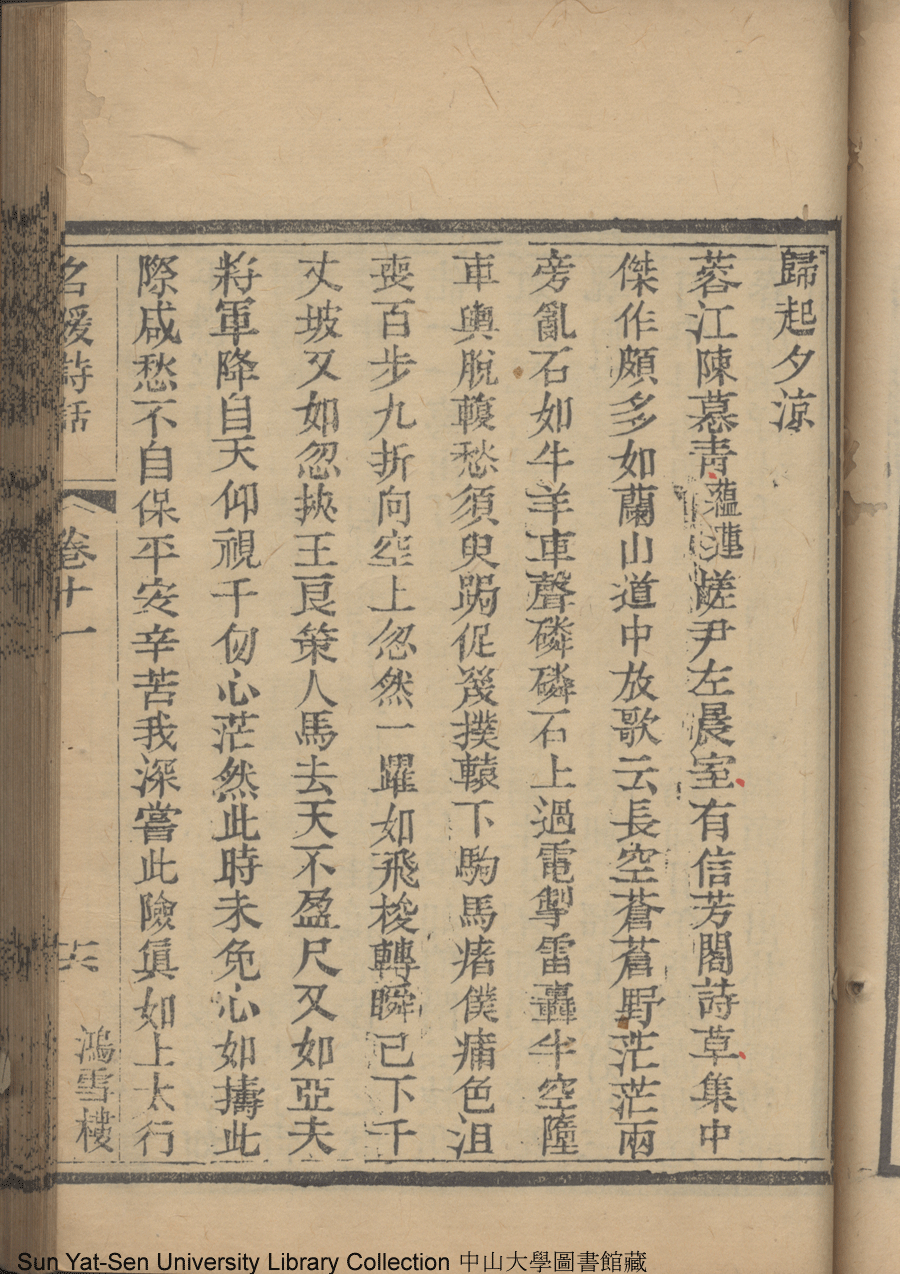 歸起夕涼
蓉江陳慕青蘊蓮嵯尹左晨室有信芳閣詩草集中
傑作頗多如蘭山道中放歌云長空蒼蒼野茫茫兩
旁亂石如牛羊車聲磷磷石上過電掣雷轟半空墮
車輿脫輹愁須臾跼促幾撲轅下駒馬瘏僕痡色沮
喪百步九折向空上忽然一躍如飛梭轉瞬已下千
丈坡又如忽挾王良策人馬去天不盈尺又如亞夫
將軍降自天仰視千仞心茫然此時未免心如擣此
際咸愁不自保平安辛苦我深嘗此險眞如上太行
名媛詩話
卷十一
十六
鴻雪樓
Sun Yat-Sen University Library Collection 中山大學圖書館藏